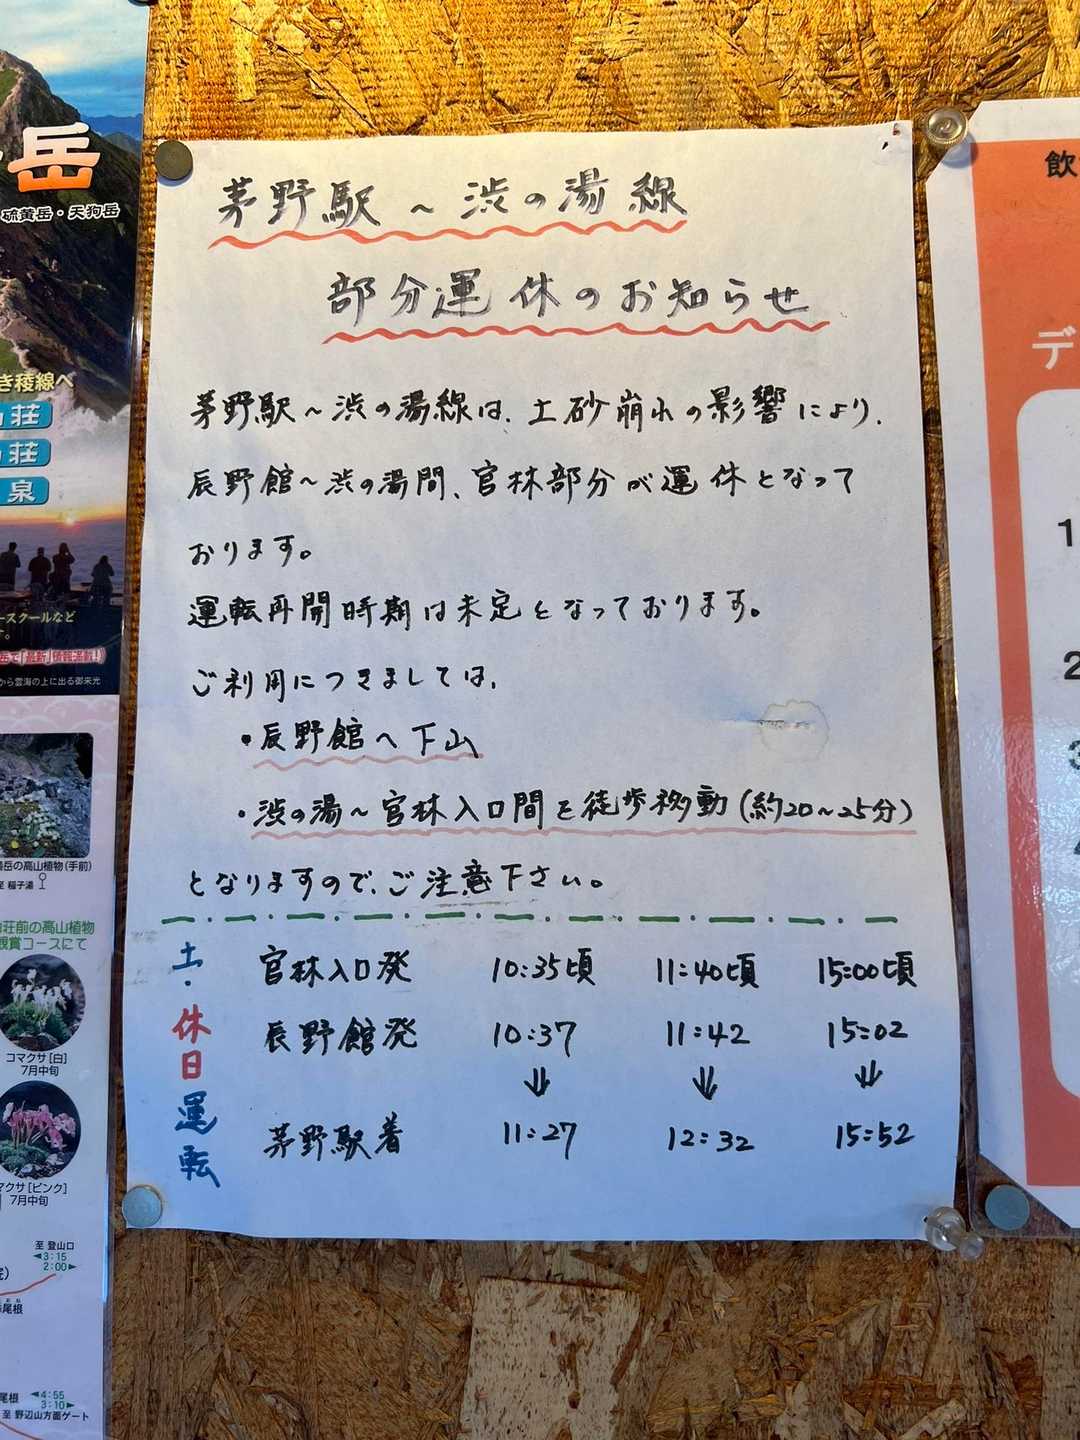 茅野駅〜渋の湯線
部分運休のお知らせ
茅野駅〜渋の湯線は、土砂崩れの影響により、
辰野館〜渋の湯間、官林部分が運休となって
おります。
運転再開時期は未定となっております。
ご利用につきましては、
・辰野館へ下山
・渋の湯〜官林入口間を徒歩移動(約20〜25分)
となりますので、ご注意下さい。
土・休日運転
官林入口発 10:35頃 11:40頃 15:00頃
辰野館発 10:37 11:42 15:02
茅野駅着 11:27 12:32 15:52
岳
硫黄岳・天狗岳
き稜線へ
荘
荘
泉
スクールなど
す。
から雲海の上に出る御来光
岳の高山植物(手前)
至 稲子湯
荘前の高山植物
観賞コースにて
コマクサ[白]
7月中旬
マクサ[ピンク]
7月中旬
至 登山口
◀3:15
2:00▶
尾根
尾根 ◀4:55
3:10▶
至 野辺山方面ゲート
飲
デ
1
2
3